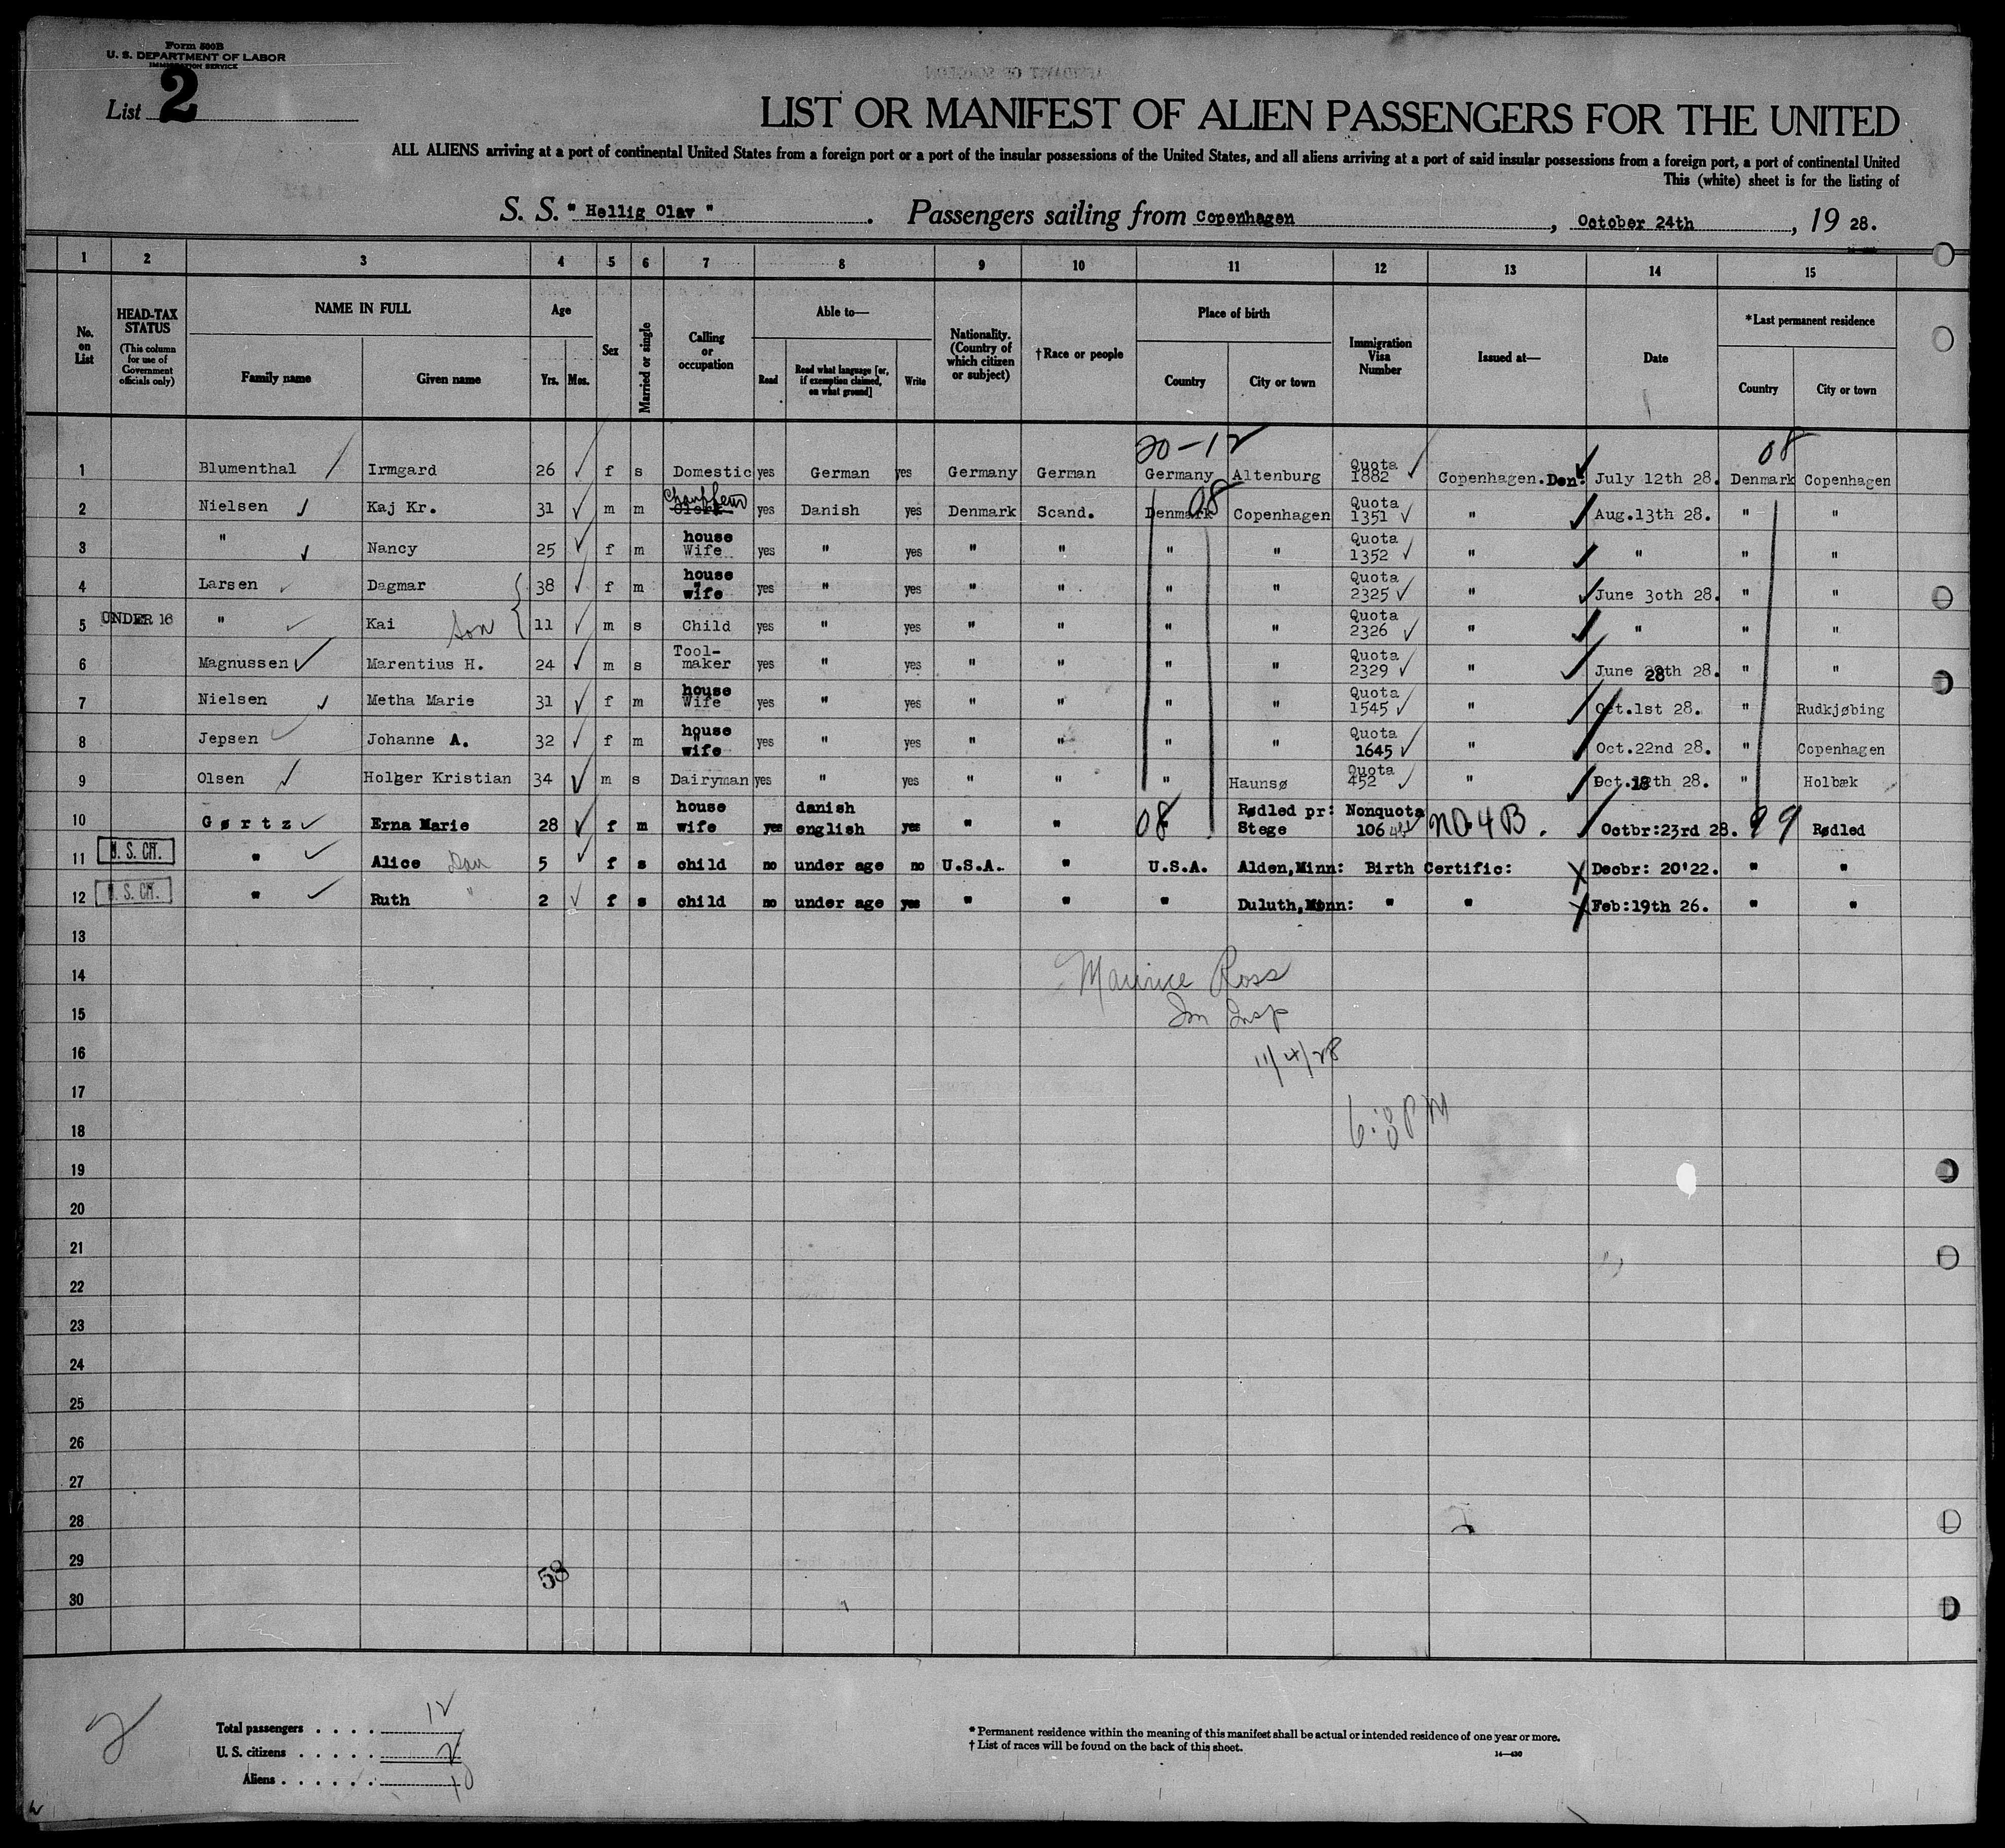 Form 500B
U. S. DEPARTMENT OF LABOR
IMMIGRATION SERVICE
List 2
LIST OR MANIFEST OF ALIEN PASSENGERS FOR THE UNITED
ALL ALIENS arriving at a port of continental United States from a foreign port or a port of the insular possessions of the United States, and all aliens arriving at a port of said insular possessions from a foreign port, a port of continental United
This (white) sheet is for the listing of
S. S. " Hellig Olav " . Passengers sailing from Copenhagen , October 24th , 19 28.
1 2 3 4 5 6 7 8 9 10 11 12 13 14 15
No. on List
HEAD-TAX STATUS
(This column for use of Government officials only)
NAME IN FULL
Family name Given name
Age
Yrs. Mos.
Sex
Married or single
Calling or occupation
Able to—
Read
Read what language [or, if exemption claimed, on what ground]
Write
Nationality. (Country of which citizen or subject)
†Race or people
Place of birth
Country City or town
Immigration Visa Number
Issued at—
Date
*Last permanent residence
Country City or town
20-12 08
1 Blumenthal Irmgard 26 f s Domestic yes German yes Germany German Germany Altenburg Quota 1882 Copenhagen.Den. July 12th 28. Denmark Copenhagen
2 Nielsen Kaj Kr. 31 m m Chauffeur yes Danish yes Denmark Scand. Denmark 08 Copenhagen Quota 1351 " Aug.13th 28. " "
3 " Nancy 25 f m house Wife yes " yes " " " " Quota 1352 " " " "
4 Larsen Dagmar 38 f m house " wife yes " yes " " " " Quota 2325 " June 30th 28. " "
5 UNDER 16 " Kai Son 11 m s Child yes " yes " " " " Quota 2326 " " " "
6 Magnussen Marentius H. 24 m s Tool-maker yes " yes " " " " Quota 2329 " June 28th 28. " "
7 Nielsen Metha Marie 31 f m house Wife yes " yes " " " " Quota 1545 " Oct.1st 28. " Rudkjøbing
8 Jepsen Johanne A. 32 f m house " wife yes " yes " " " " Quota 1645 " Oct.22nd 28. " Copenhagen
9 Olsen Holger Kristian 34 m s Dairyman yes " yes " " " Haunsø Quota 452 " Oct.18th 28. " Holbæk
10 Gørtz Erna Marie 28 f m house wife yes danish english yes " " 08 Rødled pr: Stege Nonquota 106 NO 4 B. Octbr:23rd 28. 99 Rødled
11 U. S. CIT. " Alice Dau 5 f s child no under age no U.S.A. " U.S.A. Alden,Minn: Birth Certific: Decbr: 20'22. " "
12 U. S. CIT. " Ruth " 2 f s child no under age yes " " " Duluth,Minn: " " Feb:19th 26. " "
13
14 Maurice Ross
15 Im Insp
16 11/4/28
17
18 6:00 PM
19
20
21
22
23
24
25
26
27
28
29 58
30
2
Total passengers . . . . 12
U. S. citizens . . . . . 2
Aliens . . . . . . 10
* Permanent residence within the meaning of this manifest shall be actual or intended residence of one year or more.
† List of races will be found on the back of this sheet.
14—430